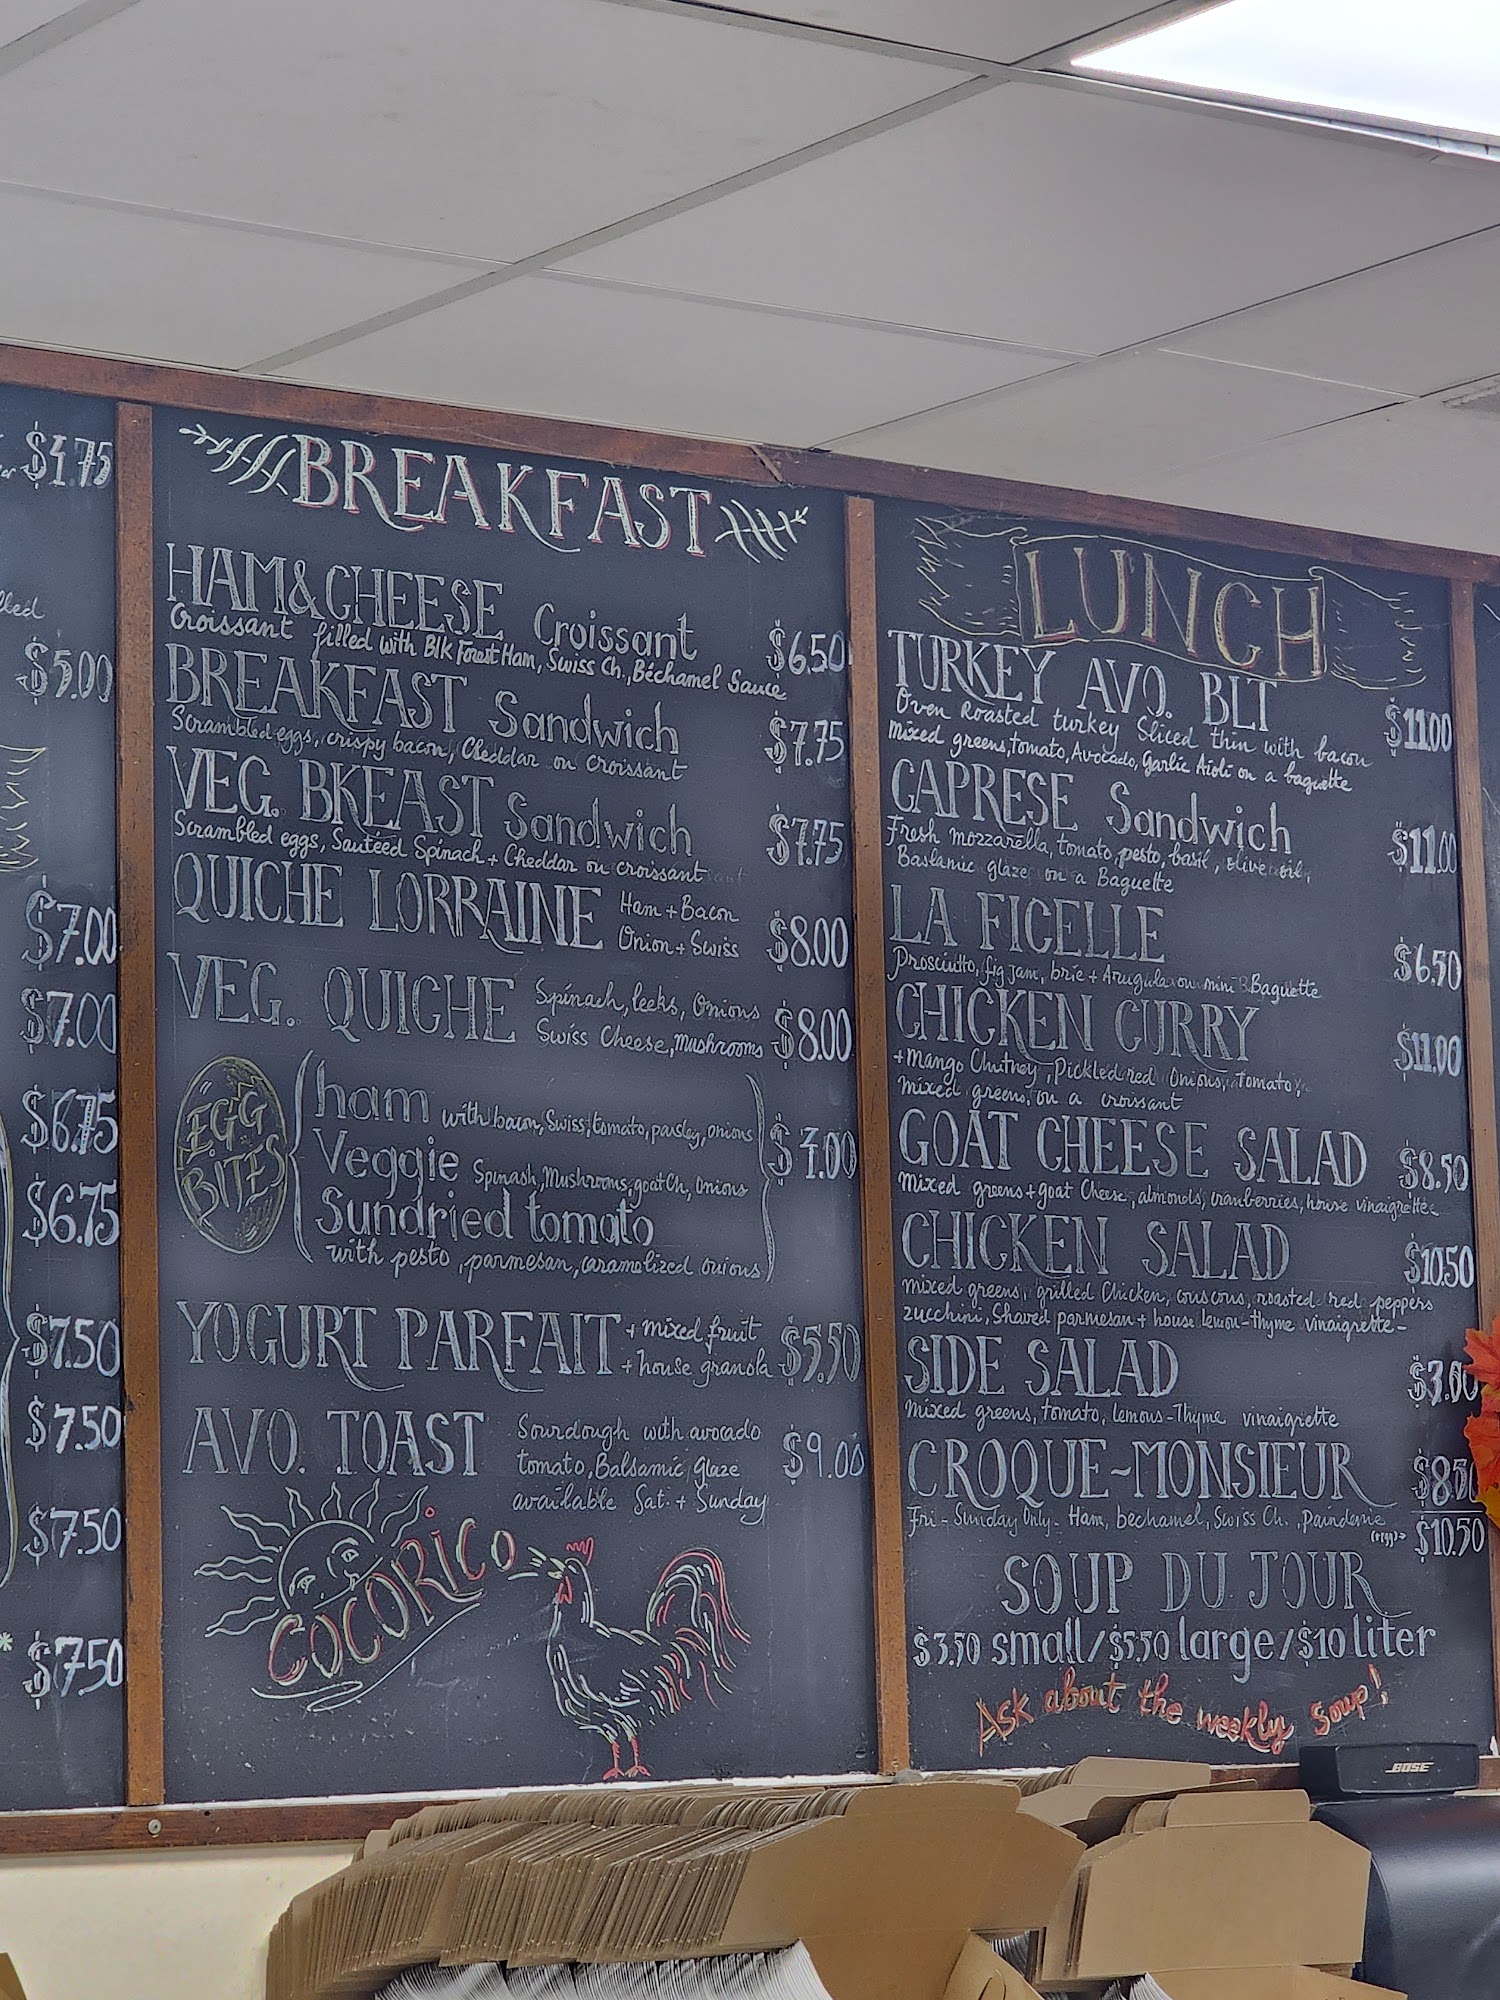 $4.75
$5.00
$7.00
$7.00
$6.75
$6.75
$7.50
$7.50
$7.50
* $7.50
BREAKFAST
HAM&CHEESE Croissant $6.50
Croissant filled with Blk Forest Ham, Swiss Ch., Béchamel Sauce
BREAKFAST Sandwich $7.75
Scrambled eggs, crispy bacon, Cheddar on croissant
VEG. BKEAST Sandwich $7.75
Scrambled eggs, Sautéed Spinach + Cheddar on croissant
QUICHE LORRAINE Ham + Bacon
Onion + Swiss $8.00
VEG. QUICHE Spinach, leeks, Onions
Swiss Cheese, Mushrooms $8.00
EGG BITES
ham with bacon, Swiss, tomato, parsley, onions
Veggie Spinash, Mushrooms, goat Ch, Onions $7.00
Sundried tomato
with pesto, parmesan, caramelized onions
YOGURT PARFAIT + mixed fruit
+ house granola $5.50
AVO. TOAST Sourdough with avocado
tomato, Balsamic Glaze $9.00
available Sat. + Sunday
COCORICO
LUNCH
TURKEY AVO. BLT $11.00
Oven Roasted turkey Sliced thin with bacon
mixed greens, tomato, Avocado, Garlic Aioli on a baguette
CAPRESE Sandwich $11.00
Fresh mozzarella, tomato, pesto, basil, olive oil,
Baslamic glaze on a Baguette
LA FICELLE $6.50
Prosciutto, fig jam, brie + Arugula on mini Baguette
CHICKEN CURRY $11.00
+ mango Chutney, Pickled red Onions, Tomato,
mixed greens, on a croissant
GOAT CHEESE SALAD $8.50
Mixed greens + goat Cheese, almonds, cranberries, house vinaigrette
CHICKEN SALAD $10.50
mixed greens, grilled Chicken, couscous, roasted red peppers
zucchini, Shaved parmesan + house lemon-thyme vinaigrette -
SIDE SALAD $3.00
Mixed greens, tomato, lemons-Thyme vinaigrette
CROQUE-MONSIEUR $8.50
Fri - Sunday Only - Ham, bechamel, Swiss Ch., paindemie
(+egg)→ $10.50
SOUP DU JOUR
$3.50 small/$5.50 large/$10 liter
Ask about the weekly soup!
BOSE